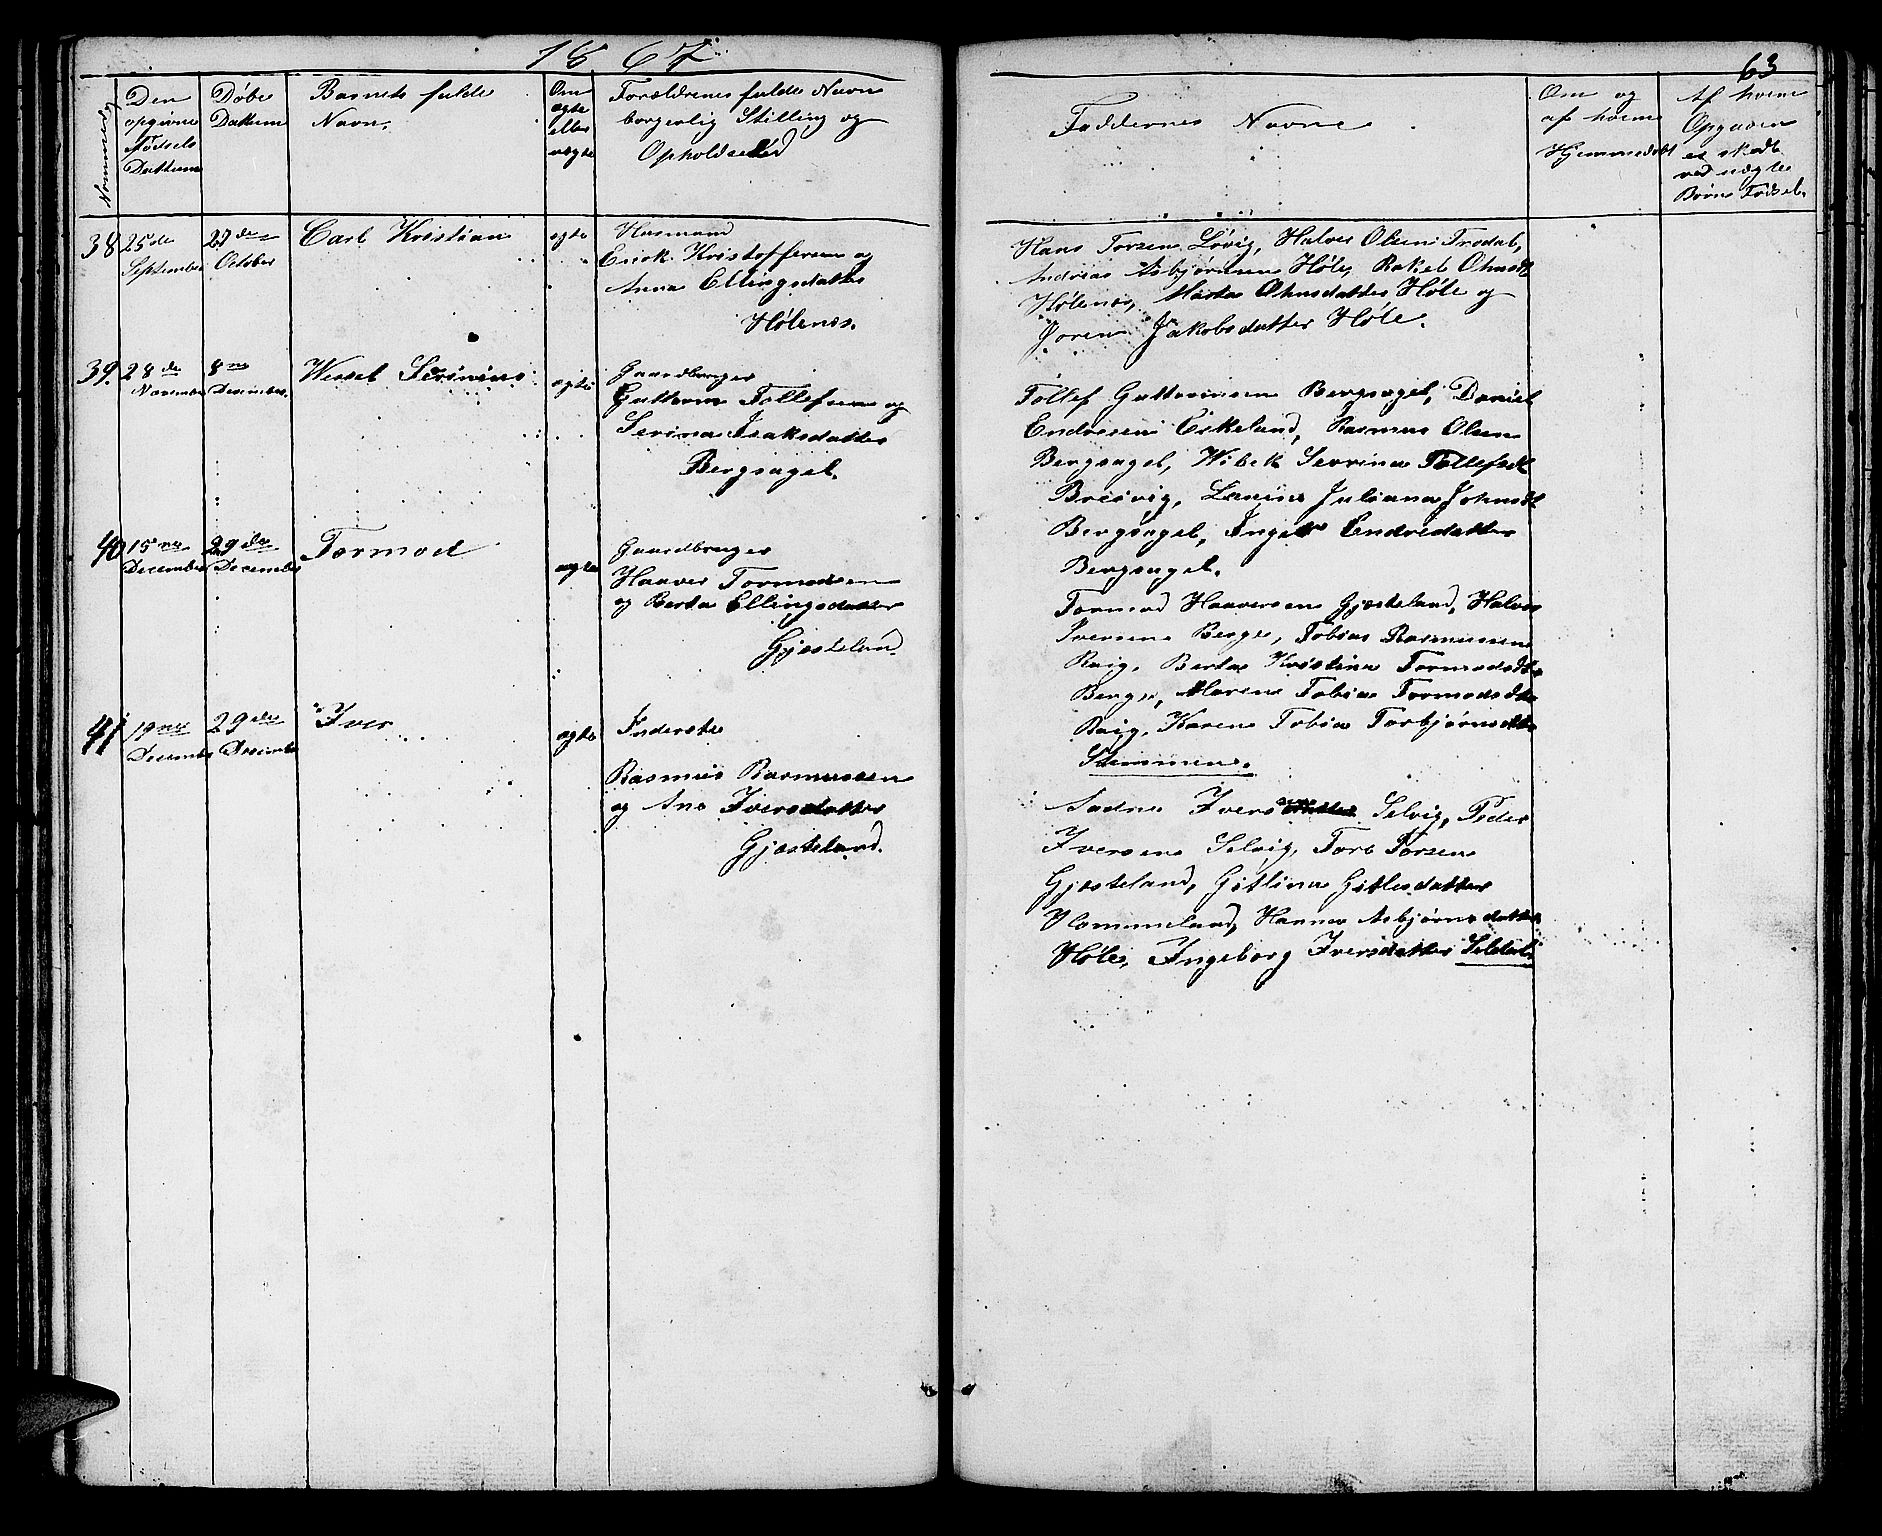 1867.
63
Nommedg
Den
opgivne
Fødsels
Dattum
Døbe
Dattum
Barnets fulde
Navn.
Om
ægte
eller
uægte
Forældrenes fulde Navn
borgerlig Stilling og
Opholdssted
Faddernes Navne
Om og
af hvem
Hjemmedøbt
Af hvem
Opgaven
er skedt
ved uægte
Børns Fødsel.
38
25de
September
27de
October
Carl Kristian
egte
Husmand
Enok Kristoffersen og
Anna Ellingsdatter
Hølenes.
Hans Torsen Løvig, Halver Olsen Trodal,
Andreas Asbjørnsen Høle, Rakel Ohmsdt
Hølenes, Marta Ohmsdatter Høle og
Joren Jakobsdatter Høle.
39.
28de
November
8no
December.
Wessel Serinius
egte
Gaardbruger
Guttorm Tollefsen og
Serina Isaksdatter
Bergsagel.
Tollef Guttormsen Bergsagel, Daniel
Endresen Eikeland, Rasmus Olsen
Bergsagel, Wibek Serrina Tollefsdt
Breivig, Lauina Juliana Johnsdt
Bergsagel, Inger Endredatter
Bergsagel.
40
15no
December
29de
December
Tormod
ægte
Gaardbruger
Haaver Tormodsen
og Berta Ellingsdatter
Gjesteland
Tormod Haaversen Gjesteland, Halver
Iversen Berge, Tobias Rasmussen
Raig, Berta Kristina Tormodsdt
Berge, Maren Tobia Tormodsdtr
Raig, Karen Tobia Torbjørnsdtr
41
19no
December
29de
Desember
Iver
ægte
Inderste
Rasmus Rasmussen
og Ane Iversdatter
Gjesteland.
Aadne Iversen Selvig, Peder
Iversen Selvig, Torb Torsen
Gjesteland, Gitlina Gitlesdatter
Hommeland, Hanna Asbjørnsdatter
Høle, Ingeborg Iversdatter Seldal.